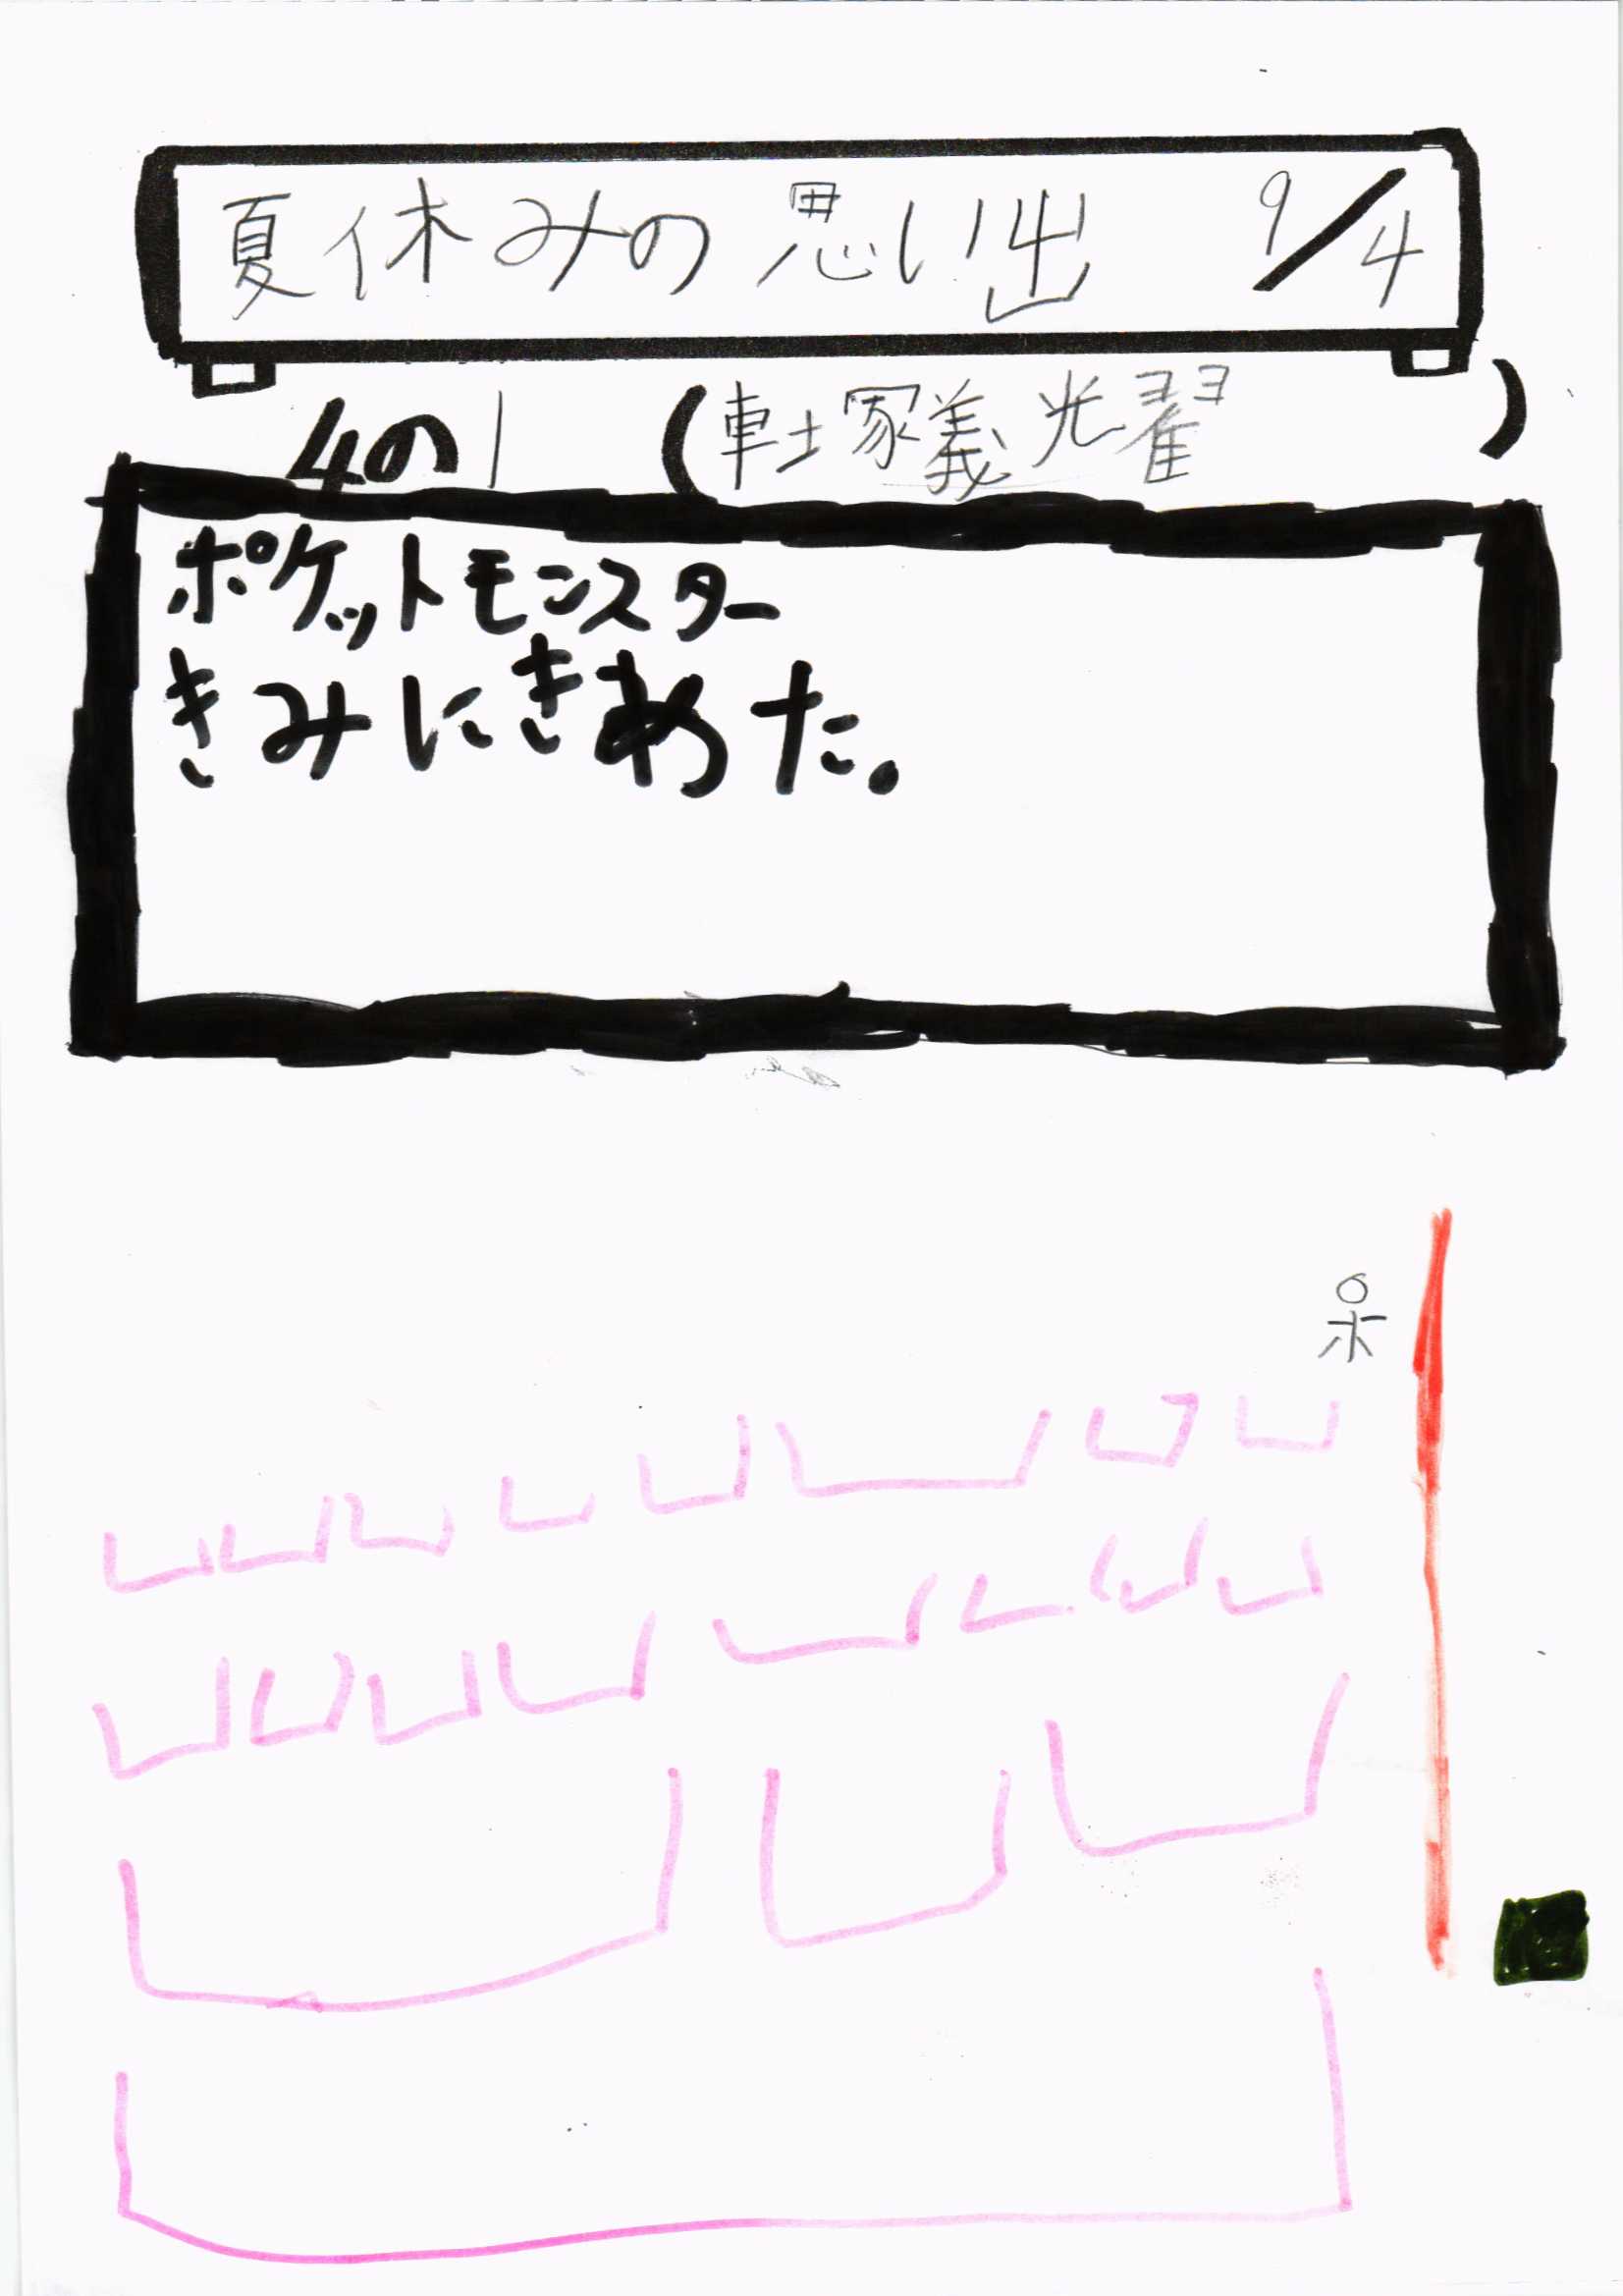 夏休みの思い出 9/4
4の1 (車土塚義光耀)
ポケットモンスター
きみにきめた。